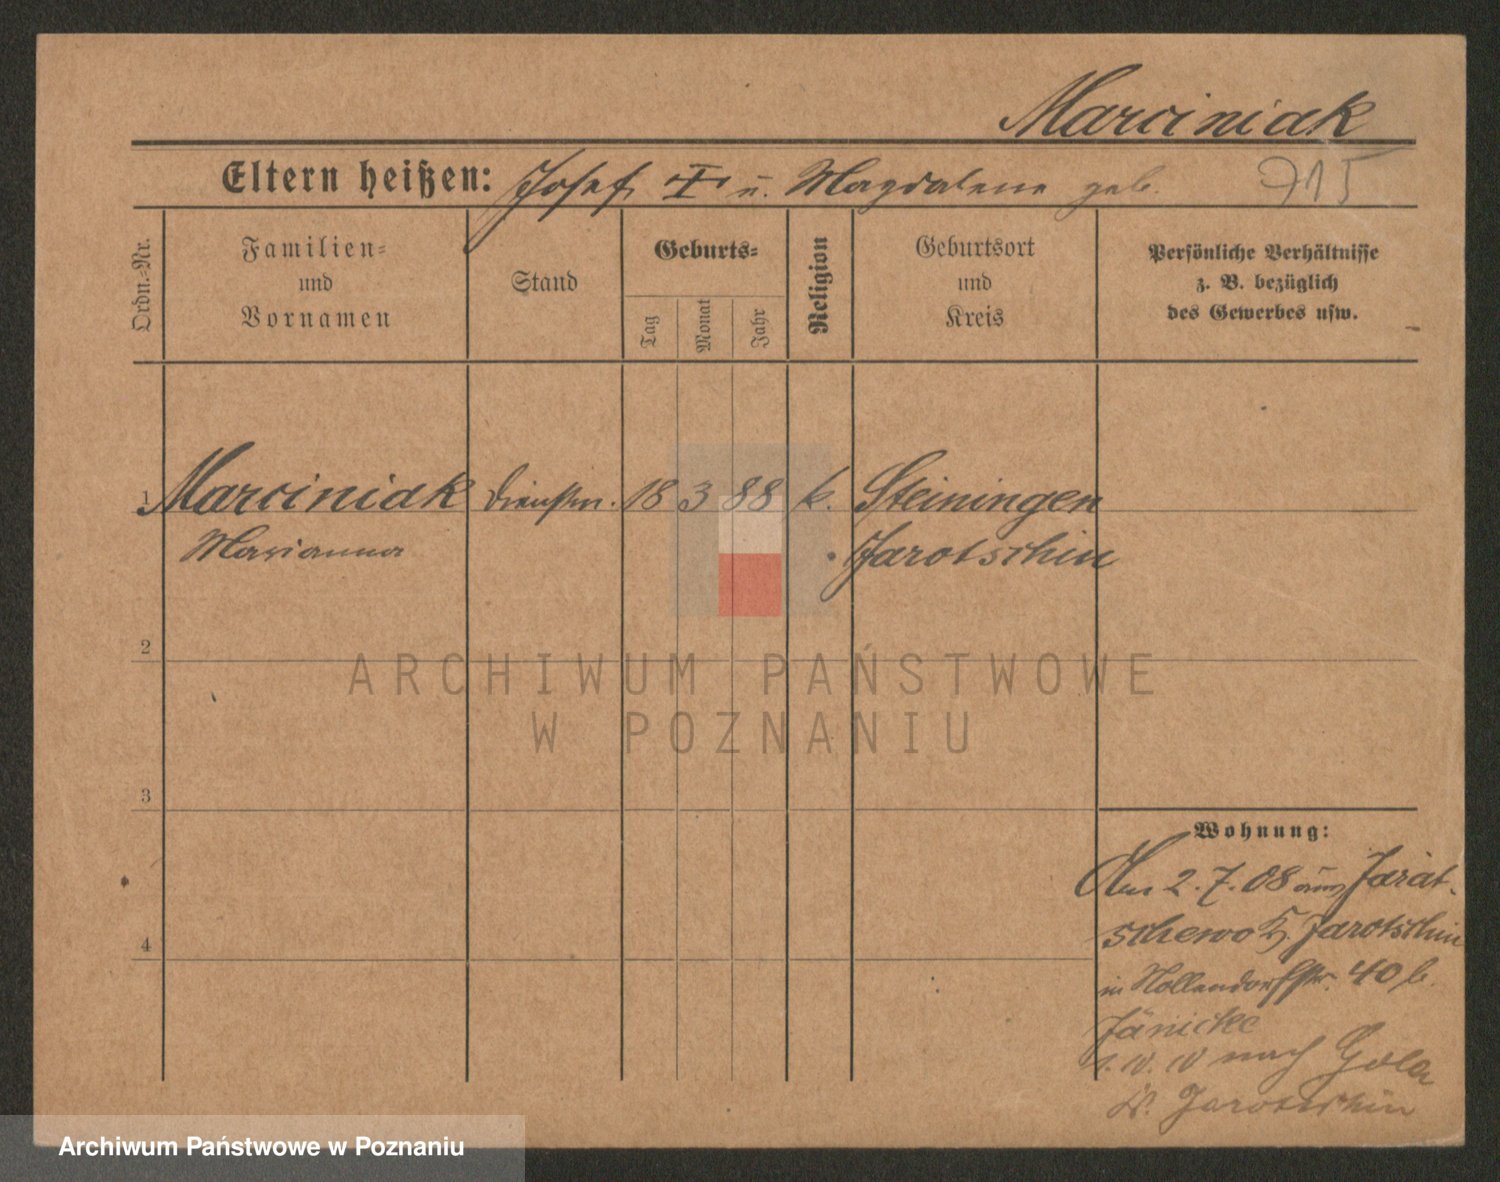 Marciniak
Eltern heißen: Josef † u. Magdalene geb. 715
Ordn.-Nr.
Familien-
und
Vornamen
Stand
Geburts-
Tag
Monat
Jahr
Religion
Geburtsort
und
Kreis
Persönliche Verhältnisse
z. B. bezüglich
des Gewerbes usw.
1 Marciniak Dienstm. 18 3 88 k. Steiningen
Marianna Jarotschin
2
ARCHIWUM PAŃSTWOWE
W POZNANIU
3
Wohnung:
Am 2.7.08 aus Jarat-
schewo K. Jarotschin
4
in Nollendorfstr. 40 b.
Jänicke
nach Gola
K. Jarotschin
Archiwum Państwowe w Poznaniu